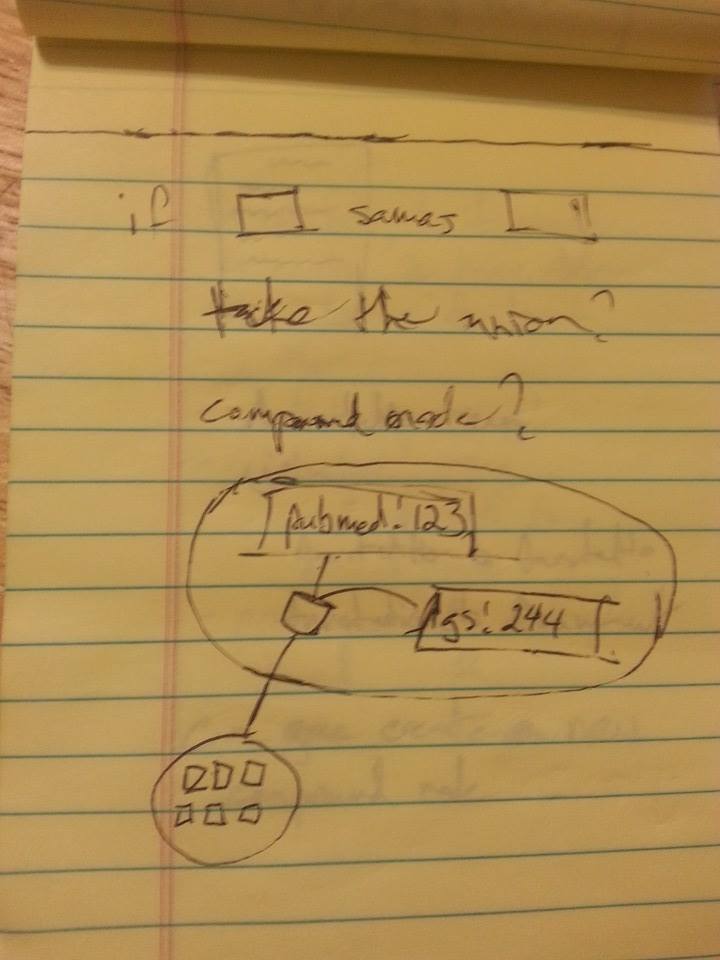 if sameas
take the union?
compound node?
pubmed:123
Ags:244